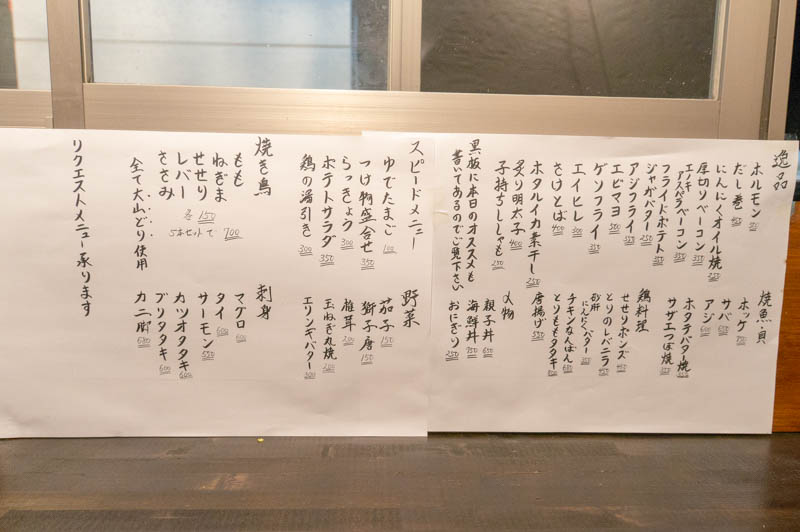 逸品
ホルモン
だし巻 450
にんにくオイル焼 250
厚切りベーコン 350
エノキ アスパラベーコン 350
フライドポテト 350
ジャガバター 250
アジフライ 350
エビマヨ 500
ゲソフライ 350
エイヒレ 300
さけとば 400
ホタルイカ素干し
炙り明太子 400
子持ちししゃも 250
黒板に本日のオススメも
書いてあるのでご覧下さい
焼魚・貝
ホッケ
サバ 650
アジ 600
ホタテバター焼
サザエつぼ焼
鶏料理
せせりポンズ
とりのレバニラ
砂肝にんにくバター
チキンなんばん 680
とりももタタキ
唐揚げ 550
〆物
親子丼 650
海鮮丼 750
おにぎり 250
スピードメニュー
ゆでたまご 100
つけ物盛合せ 350
らっきょう 300
ポテトサラダ 350
鶏の湯引き 300
野菜
茄子 150
獅子唐 150
椎茸 200
玉ねぎ丸焼
エリンギバター
焼き鳥
もも
ねぎま
せせり
レバー
ささみ
各 150
5本セットで 700
全て大山どり使用
刺身
マグロ
タイ 600
サーモン 550
カツオタタキ 600
ブリタタキ 600
カニ刺 680
リクエストメニュー承ります